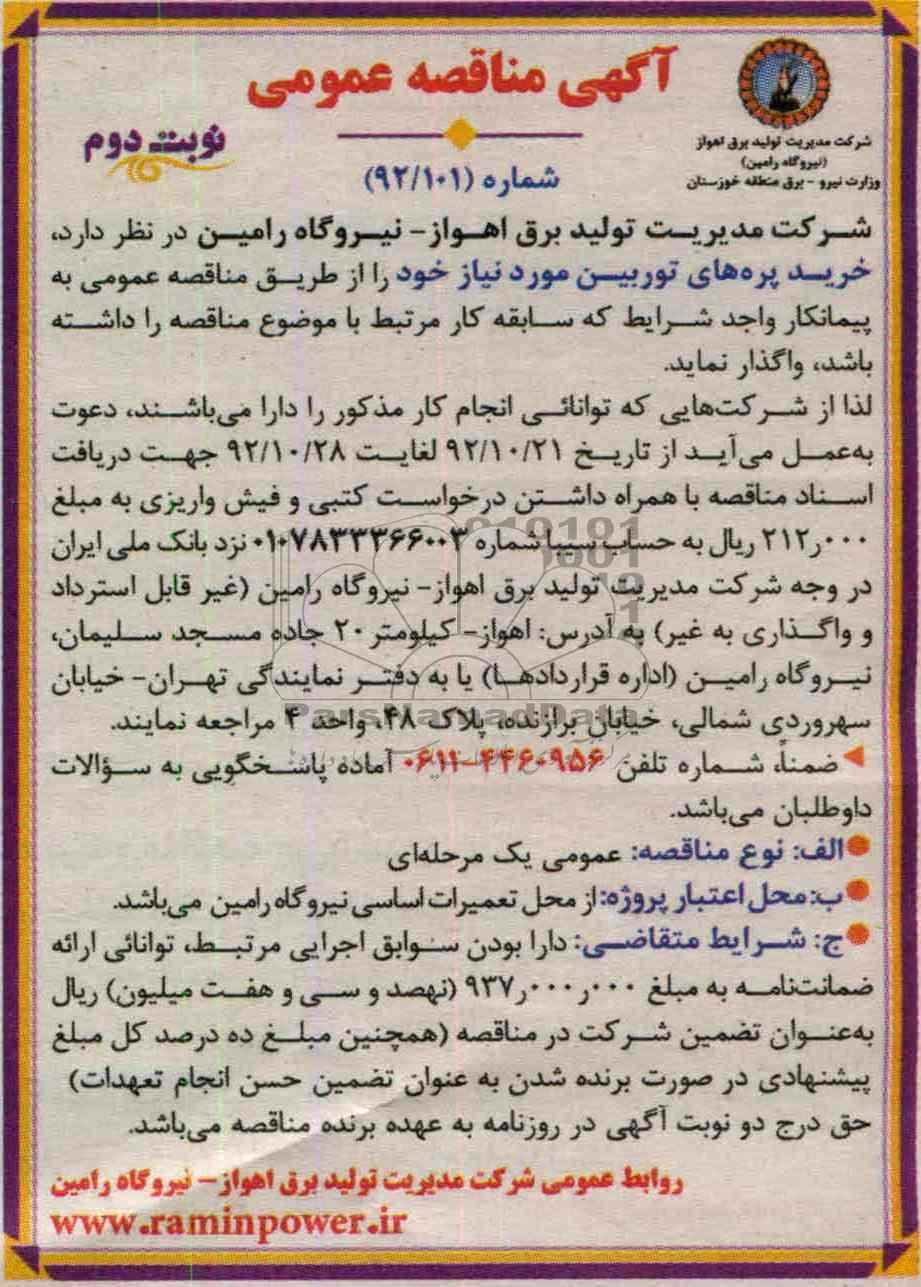 آگهی مناقصه عمومی
شرکت مدیریت تولید برق اهواز
(نیروگاه رامین)
وزارت نیرو - برق منطقه خوزستان
نوبت دوم
شماره (۹۲/۱۰۱)
شرکت مدیریت تولید برق اهواز- نیروگاه رامین در نظر دارد،
خرید پره‌های توربین مورد نیاز خود را از طریق مناقصه عمومی به
پیمانکار واجد شرایط که سابقه کار مرتبط با موضوع مناقصه را داشته
باشد، واگذار نماید.
لذا از شرکت‌هایی که توانائی انجام کار مذکور را دارا می‌باشند، دعوت
به‌عمل می‌آید از تاریخ ۹۲/۱۰/۲۱ لغایت ۹۲/۱۰/۲۸ جهت دریافت
اسناد مناقصه با همراه داشتن درخواست کتبی و فیش واریزی به مبلغ
۲۱۲٫۰۰۰ ریال به حساب سیبا شماره ۰۱۰۷۸۳۳۳۶۶۰۰۳ نزد بانک ملی ایران
در وجه شرکت مدیریت تولید برق اهواز- نیروگاه رامین (غیر قابل استرداد
و واگذاری به غیر) به آدرس: اهواز- کیلومتر ۲۰ جاده مسجد سلیمان،
نیروگاه رامین (اداره قراردادها) یا به دفتر نمایندگی تهران- خیابان
سهروردی شمالی، خیابان برازنده، پلاک ۴۸، واحد ۴ مراجعه نمایند.
ParsNamadData
ضمناً، شماره تلفن ۰۶۱۱-۴۴۶۰۹۵۶ آماده پاسخگویی به سؤالات
داوطلبان می‌باشد.
الف: نوع مناقصه: عمومی یک مرحله‌ای
ب: محل اعتبار پروژه: از محل تعمیرات اساسی نیروگاه رامین می‌باشد.
ج: شرایط متقاضی: دارا بودن سوابق اجرایی مرتبط، توانائی ارائه
ضمانتنامه به مبلغ ۹۳۷٫۰۰۰٫۰۰۰ (نهصد و سی و هفت میلیون) ریال
به‌عنوان تضمین شرکت در مناقصه (همچنین مبلغ ده درصد کل مبلغ
پیشنهادی در صورت برنده شدن به عنوان تضمین حسن انجام تعهدات)
حق درج دو نوبت آگهی در روزنامه به عهده برنده مناقصه می‌باشد.
روابط عمومی شرکت مدیریت تولید برق اهواز- نیروگاه رامین
www.raminpower.ir